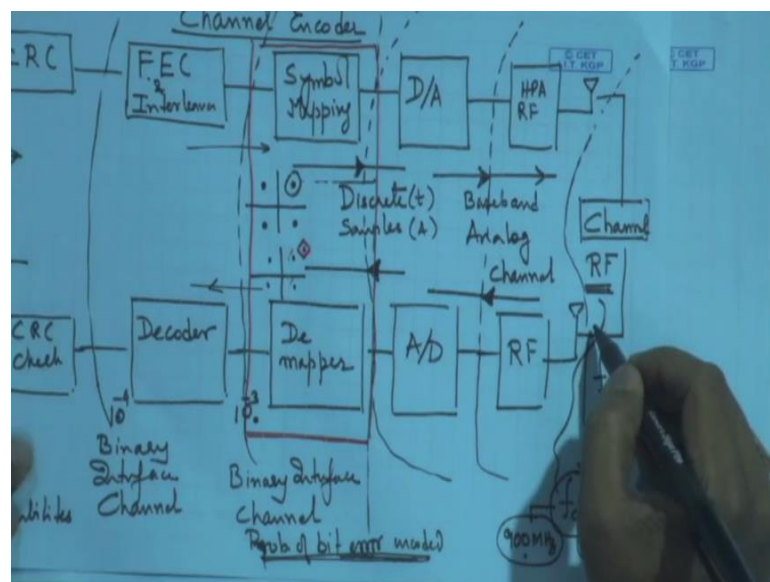 Channel Encoder
CRC
FEC
&
Interleaver
Symbol
Mapping
D/A
HPA
RF
© CET
I.I.T. KGP
CET
I.T. KGP
Discrete(t)
Samples (A)
Baseband
Analog
Channel
Channel
RF
CRC
Check
Decoder
De
mapper
A/D
RF
10⁻⁴
10⁻³
Binary
Interface
Channel
Binary Interface
Channel
Prob of bit error needed
900MHz